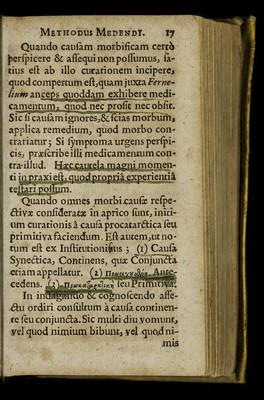 METHODUS MEDENDI. 17
Quando causam morbificam certò
perspicere & assequi non possumus, sa-
tius est ab illo curationem incipere,
quod compertum est, quam juxta Ferne-
lium anceps quoddam exhibere medi-
camentum, quod nec prosit nec obsit.
Sic si causam ignores, & scias morbum,
applica remedium, quod morbo con-
trariatur; Si symptoma urgens perspi-
cis, præscribe illi medicamentum con-
tra illud. Hæc cautela magni momen-
ti in praxi est, quod propriâ experientiâ
testari possum.
Quando omnes morbi causæ respe-
ctivæ consideratæ in aprico sunt, initi-
um curationis à causa procatarctica seu
primitiva faciendum. Est autem, ut no-
tum est ex Institutionibus; (1) Causa
Synectica, Continens, quæ Conjuncta
etiam appellatur. (2) Ante-
cedens. (3) seu Primitiva.
In indagando & cognoscendo affe-
ctu ordiri consultum à causa continen-
te seu conjuncta. Sic multi diu vomunt,
vel quod nimium bibunt, vel quod ni-
mis